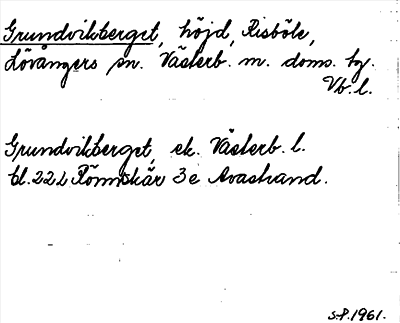 Grundvikberget, höjd, Risböle,
Lövångers sn. Västerb. m. doms. tg.
Vb. l.
Grundvikberget, ek. Västerb. l.
bl. 22 L Rönnskär 3 e Avastrand.
S-P. 1961.